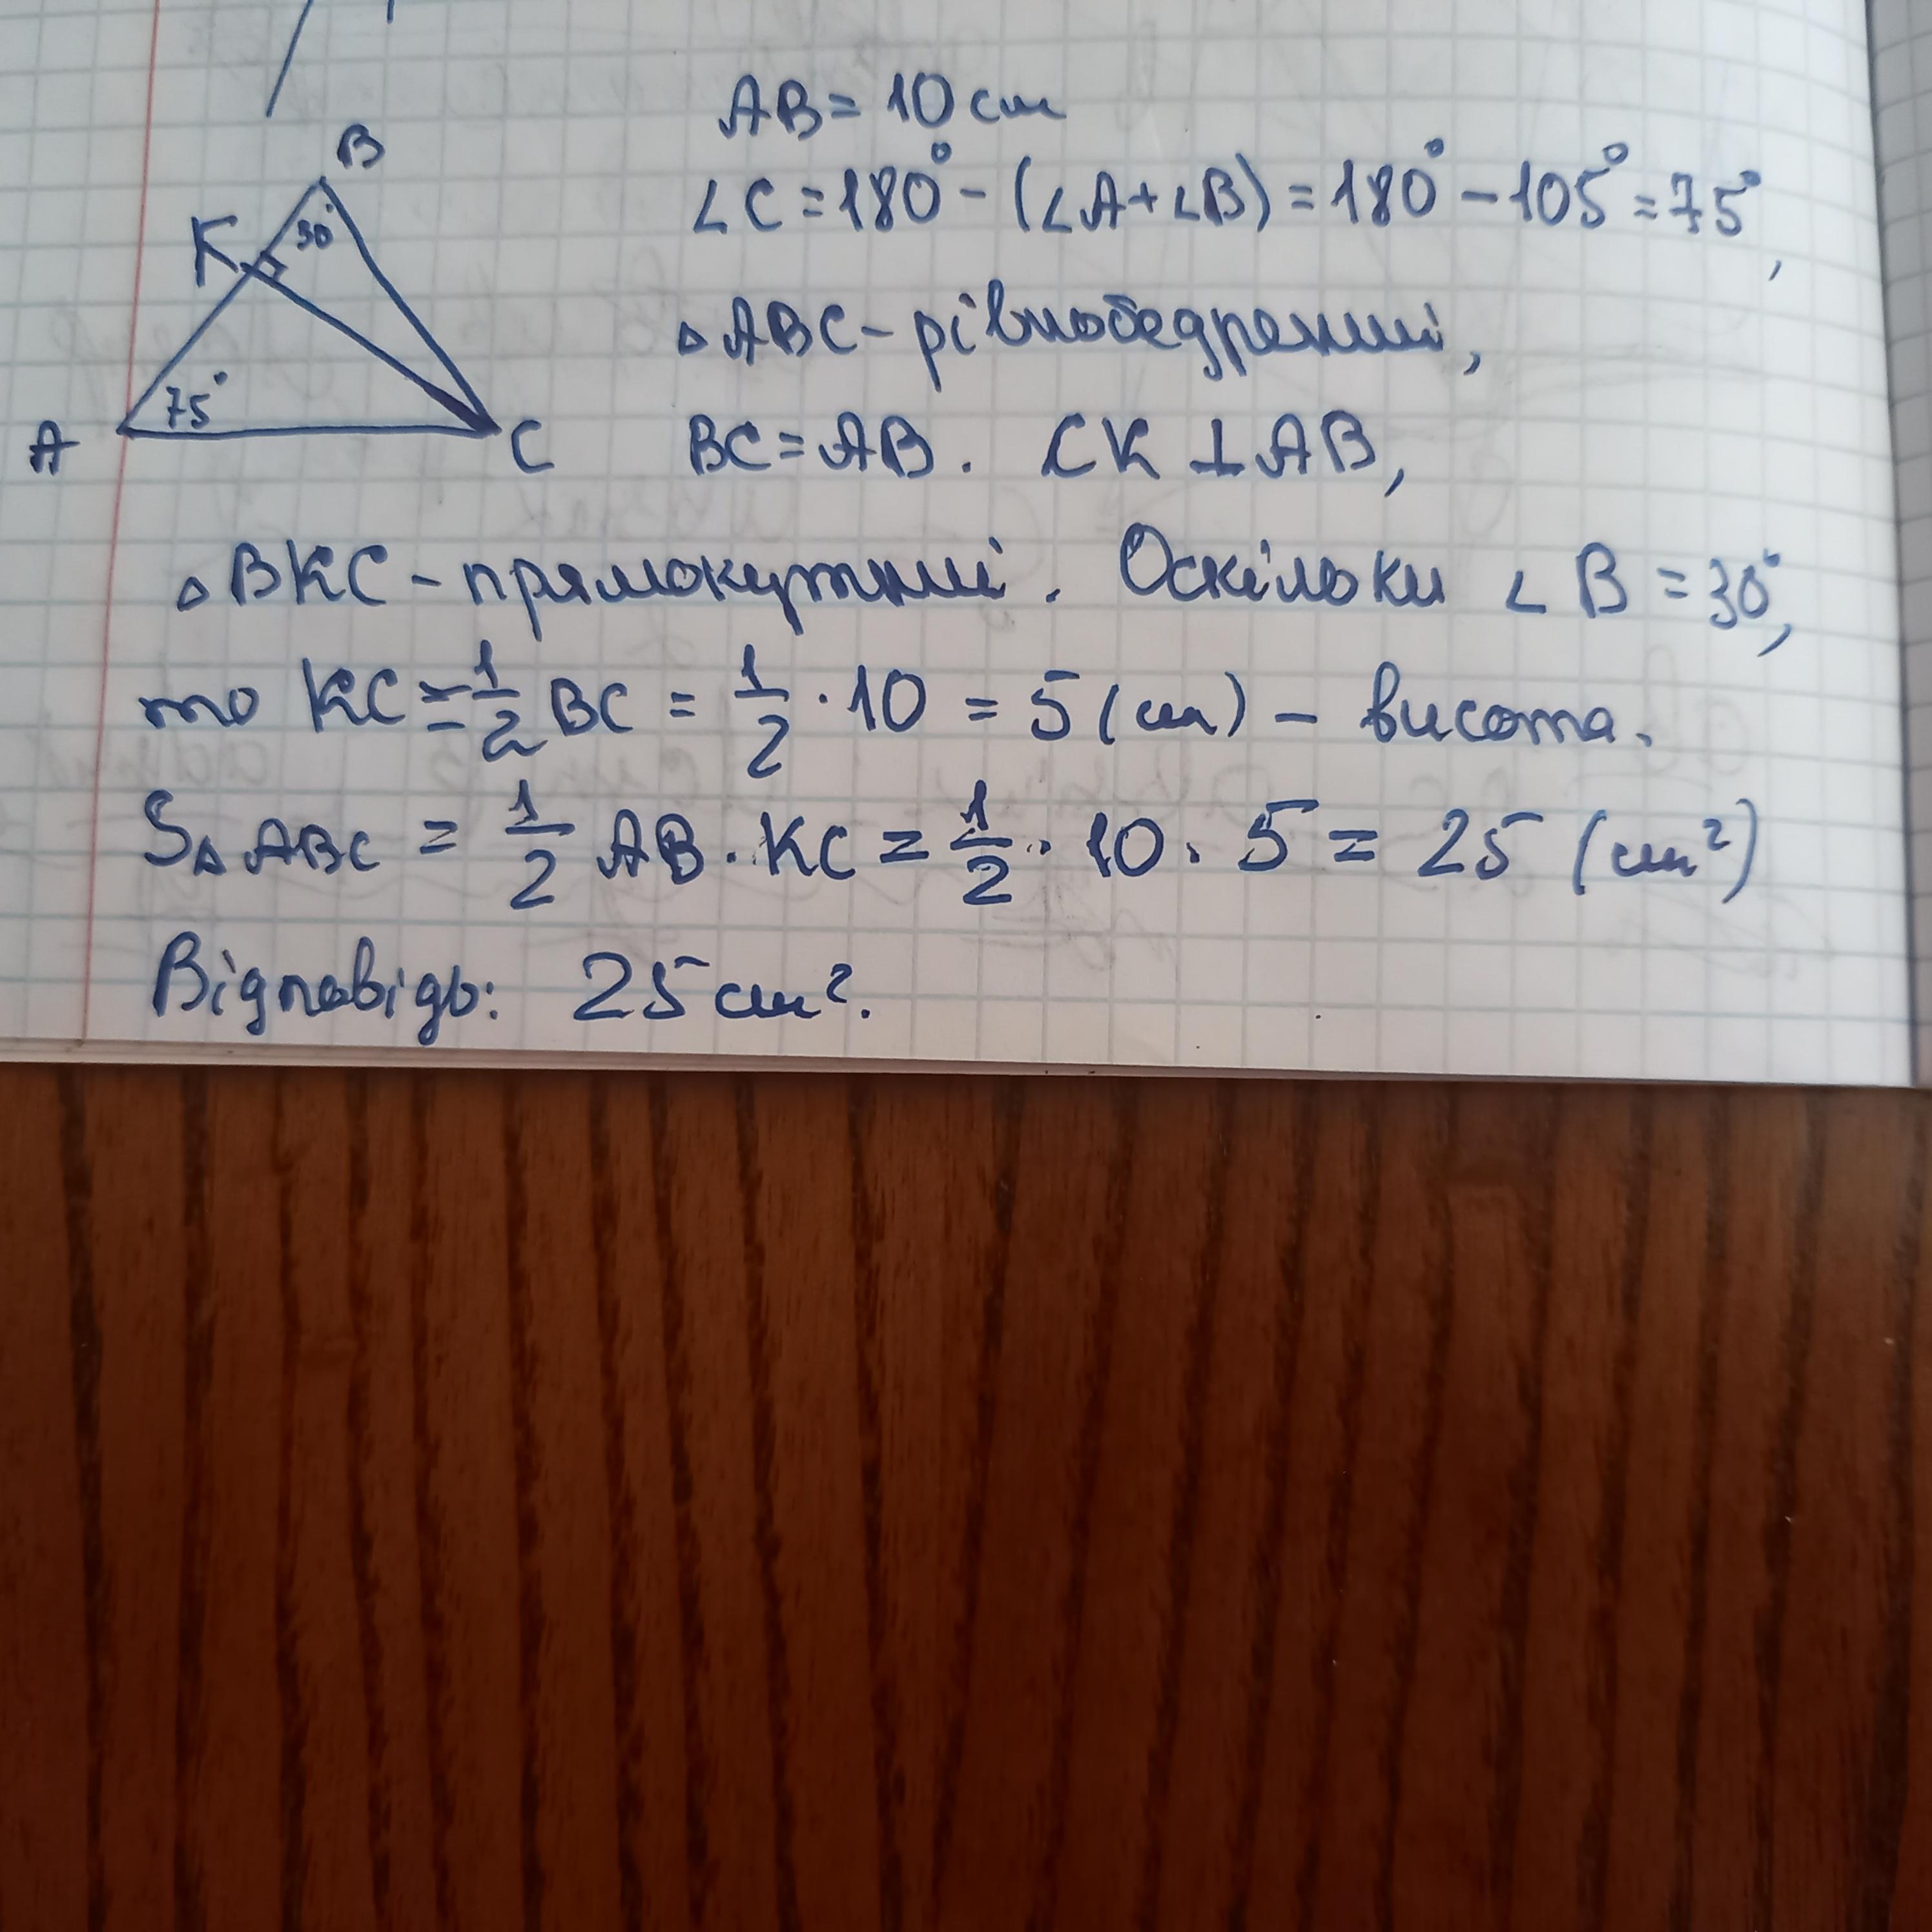 B
K
30°
75°
A
C
AB = 10 см
∠C = 180° - (∠A + ∠B) = 180° - 105° = 75°,
△ABC - рівнобедрений,
BC = AB. CK ⊥ AB,
△BKC - прямокутний. Оскільки ∠B = 30°,
то KC = 1/2 BC = 1/2 · 10 = 5 (см) - висота.
S△ABC = 1/2 AB · KC = 1/2 · 10 · 5 = 25 (см²)
Відповідь: 25 см².